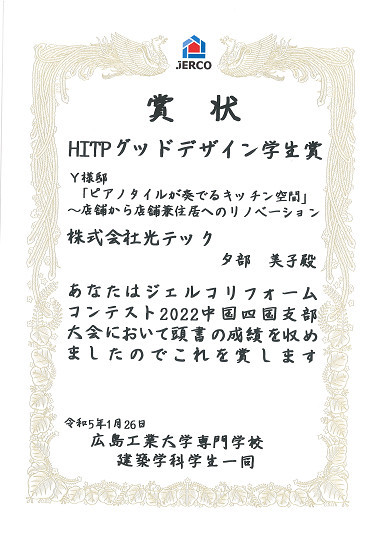 JERCO
賞状
HITPグッドデザイン学生賞
Y様邸
「ピアノタイルが奏でるキッチン空間」
～店舗から店舗兼住居へのリノベーション
株式会社光テック
夕部 美子殿
あなたはジェルコリフォーム
コンテスト2022中国四国支部
大会において頭書の成績を収め
ましたのでこれを賞します
令和5年1月26日
広島工業大学専門学校
建築学科学生一同